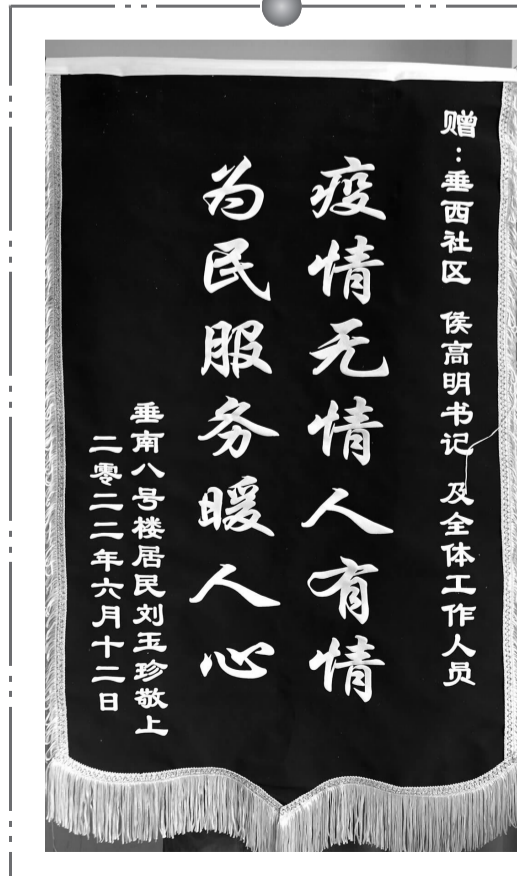 赠：垂西社区 侯高明书记 及全体工作人员
疫情无情人有情
为民服务暖人心
垂南八号楼居民刘玉珍敬上
二零二二年六月十二日